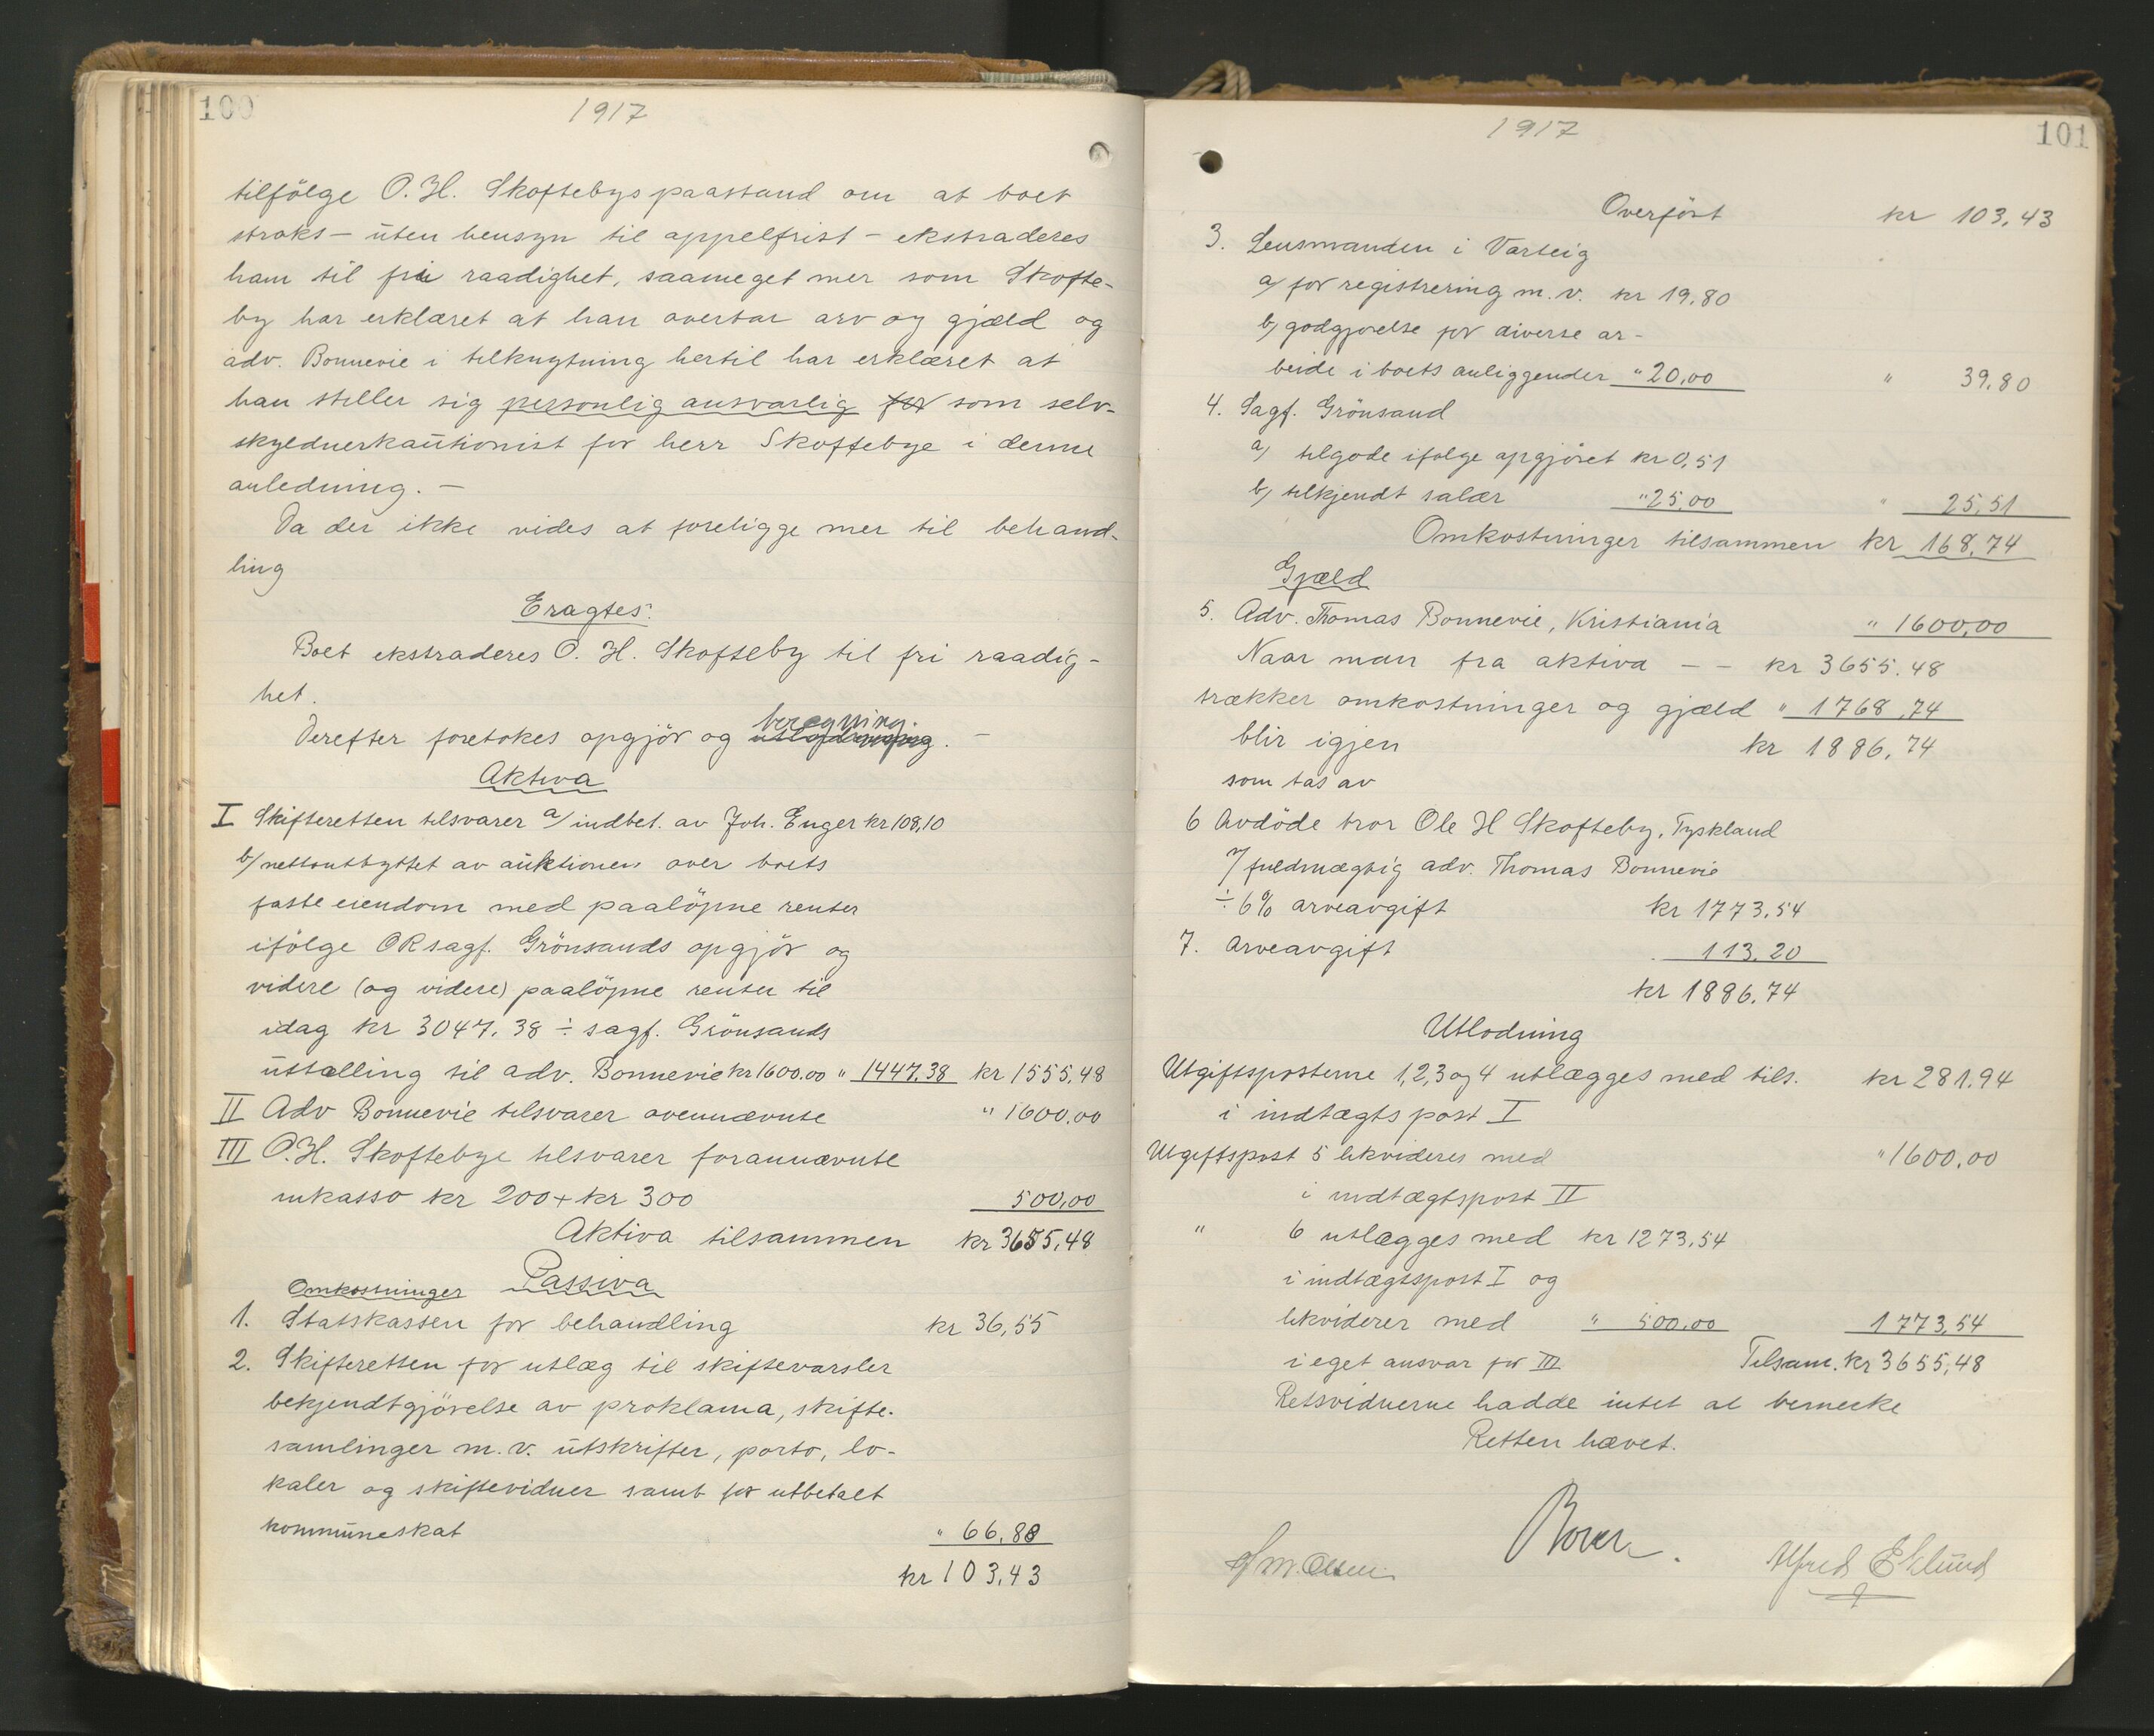 100
1917
tilfölge O. H. Skoftebys paastand om at boet
straks – uten hensyn til appelfrist – ekstraderes
ham til fri raadighet, saameget mer som Skofte-
by har erklæret at han overtar arv og gjæld og
adv. Bonnevie i tilknytning hertil har erklæret at
han stiller sig personlig ansvarlig for som selv-
skyldnerkautionist for herr Skoftebye i denne
anledning. –
Da der ikke vides at foreligge mer til behand-
ling
Eragtes:
Boet ekstraderes O. H. Skofteby til fri raadig-
het.
beregning.
Derefter foretokes opgjör og –
Aktiva
I Skifteretten tilsvarer a/ indbet. av Joh. Enger kr 108,10
b/ nettoutbyttet av auktionen over boets
faste eiendom med paalöpne renter
ifölge ORsagf. Grönsands opgjör og
videre (og videre) paalöpne renter til
idag kr 3047.38 ÷ sagf. Grönsands
uttælling til adv. Bonnevie kr 1600.00 " 1447.38 kr 1555,48
II Adv Bonnevie tilsvarer ovennævnte " 1600.00
III O.H. Skoftebye tilsvarer forannævnte
inkasso kr 200 + kr 300 500,00
Aktiva tilsammen kr 3655,48
Omkostninger Passiva
1. Statskassen for behandling kr 36,55
2. Skifteretten for utlæg til skiftevarsler
bekjendtgjörelse av proklama, skifte-
samlinger m. v. utskrifter, porto, lo-
kaler og skiftevidner samt for utbetalt
kommuneskat " 66.88
kr 103,43
1917
101
Overfört kr 103,43
3. Lensmanden i Varteig
a/ for registrering m. v. kr 19,80
b/ godgjorelse for diverse ar-
beide i boets anliggender " 20,00 " 39,80
4. Sagf. Grönsand
a/ tilgode ifolge opgjöret kr 0,51
b/ tilkjendt salær " 25,00 " 25,51
Omkostninger tilsammen kr 168,74
Gjæld
5. Adv. Thomas Bonnevie, Kristiania " 1600,00
Naar man fra aktiva – – kr 3655.48
trækker omkostninger og gjæld " 1768,74
blir igjen kr 1886,74
som tas av
6 Avdöde bror Ole H Skofteby, Tyskland
v/ fuldmægtig adv. Thomas Bonnevie
÷ 6% arveavgift kr 1773,54
7. Arveavgift 113,20
kr 1886,74
Utlodning
Utgiftsposterne 1, 2, 3 og 4 utlægges med tils. kr 281.94
i indtægtspost I
Utgiftspost 5 likvideres med " 1600,00
i indtægtspost II
" 6 utlægges med kr 1273,54
i indtægtspost I og
likviderer med " 500.00 1773,54
i eget ansvar for III Tilsam. kr 3655,48
Retsvidnerne hadde intet at bemerke
Retten hævet.
M. Olsen
Alfred Eklund